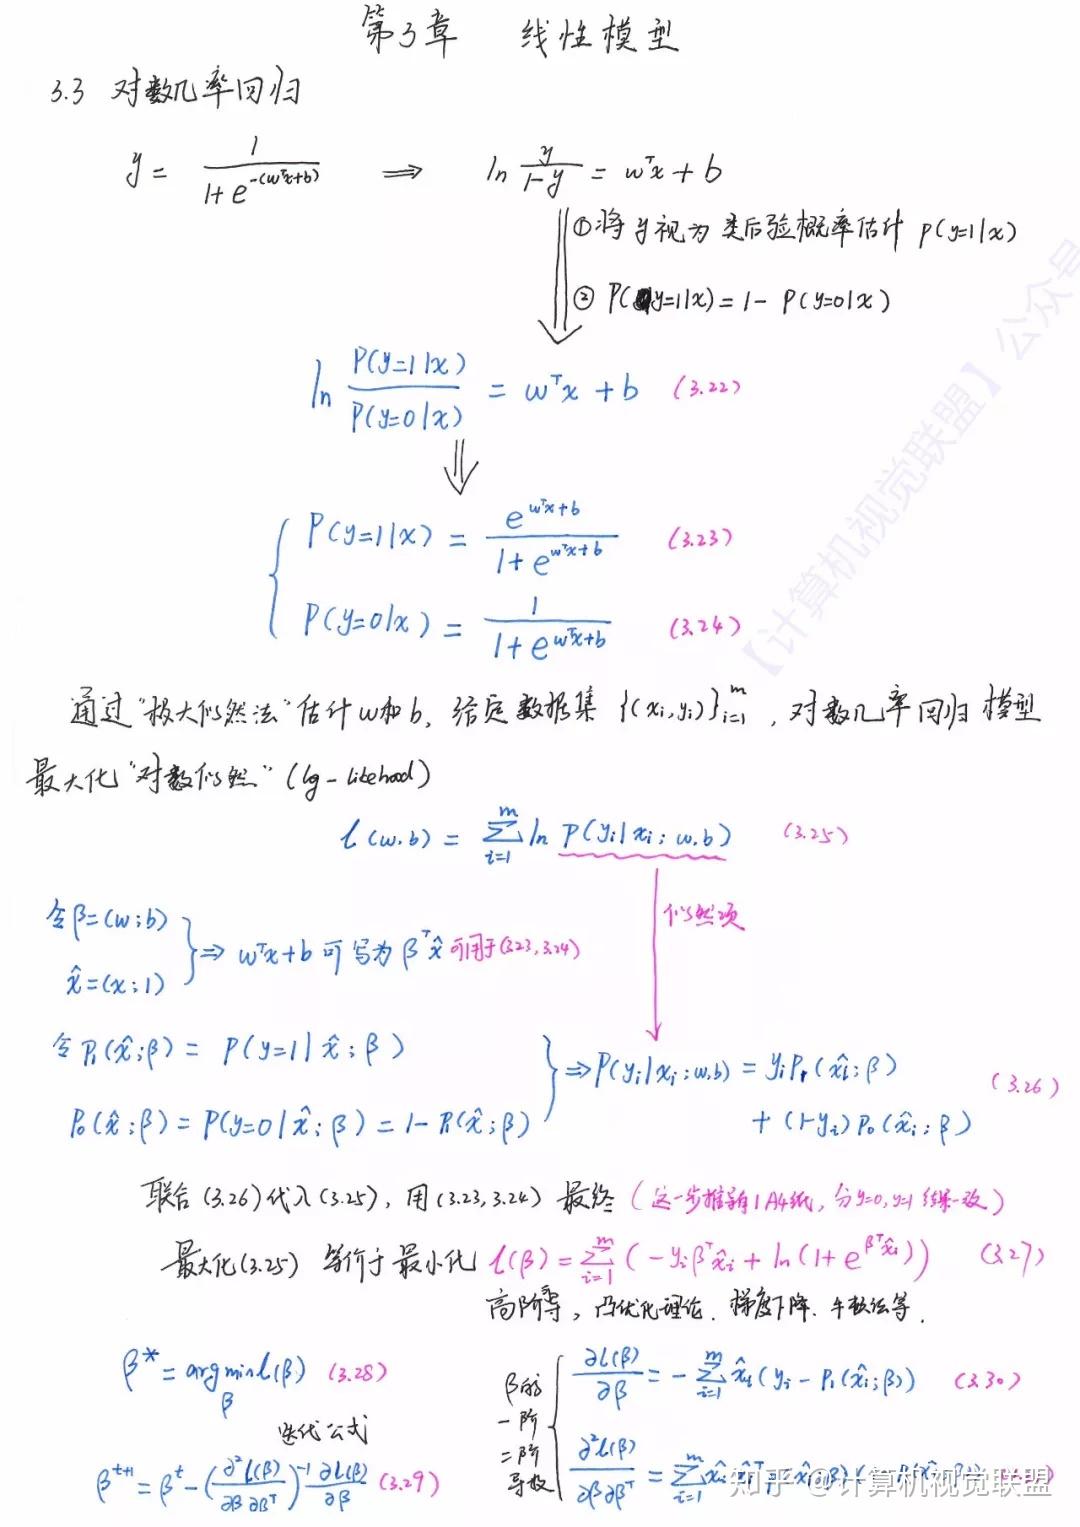 第3章 线性模型
3.3 对数几率回归
y = 1 / (1+e^{-(wᵀx+b)}) ⇒ ln y/(1-y) = wᵀx+b
①将y视为类后验概率估计 p(y=1|x)
② P(y=1|x) = 1- P(y=0|x)
ln P(y=1|x)/P(y=0|x) = wᵀx+b (3.22)
P(y=1|x) = e^{wᵀx+b} / (1+e^{wᵀx+b}) (3.23)
P(y=0|x) = 1 / (1+e^{wᵀx+b}) (3.24)
通过"极大似然法"估计w和b, 给定数据集 {(xᵢ,yᵢ)}ᵢ₌₁ᵐ, 对数几率回归模型
最大化"对数似然" (lg-likehood)
ℓ(w.b) = Σᵢ₌₁ᵐ ln P(yᵢ|xᵢ; w.b) (3.25)
似然项
令β=(w;b)
x̂=(x;1)
⇒ wᵀx+b 可写为 βᵀx̂ 可用于(3.23,3.24)
令 P₁(x̂;β) = P(y=1|x̂;β)
P₀(x̂;β) = P(y=0|x̂;β) = 1-P₁(x̂;β)
⇒ P(yᵢ|xᵢ;w.b) = yᵢP₁(x̂ᵢ;β)
+ (1-yᵢ)P₀(x̂ᵢ;β) (3.26)
联合(3.26)代入(3.25), 用(3.23,3.24) 最终 (这一步推导有1A4纸, 分y=0,y=1 结果一致)
最大化(3.25) 等价于最小化 ℓ(β) = Σᵢ₌₁ᵐ (-yᵢβᵀx̂ᵢ + ln(1+e^{βᵀx̂ᵢ})) (3.27)
高阶导, 凸优化理论. 梯度下降. 牛顿法等.
β* = arg min_β ℓ(β) (3.28)
迭代公式
βᵗ⁺¹ = βᵗ - (∂²ℓ(β)/∂β∂βᵀ)⁻¹ ∂ℓ(β)/∂β (3.29)
β的
一阶
二阶
导数
∂ℓ(β)/∂β = - Σᵢ₌₁ᵐ x̂ᵢ(yᵢ - P₁(x̂ᵢ;β)) (3.30)
∂²ℓ(β)/∂β∂βᵀ = Σᵢ₌₁ᵐ x̂ᵢx̂ᵢᵀ
【计算机视觉联盟】公众号
知乎 @计算机视觉联盟